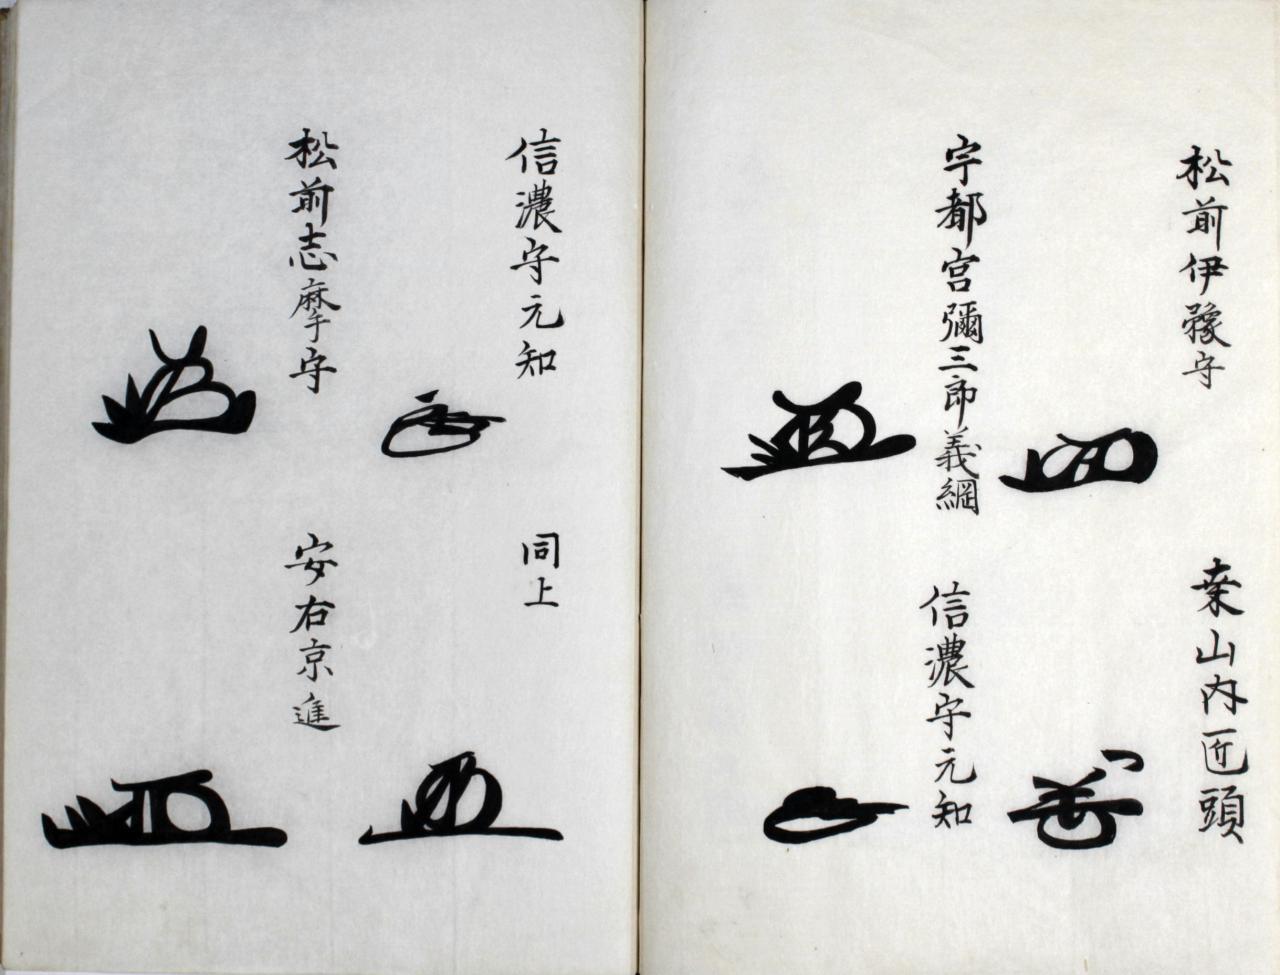 松前伊豫守
桒山内匠頭
宇都宮彌三郎義綱
信濃守元知
信濃守元知
同上
松前志摩守
安右京進